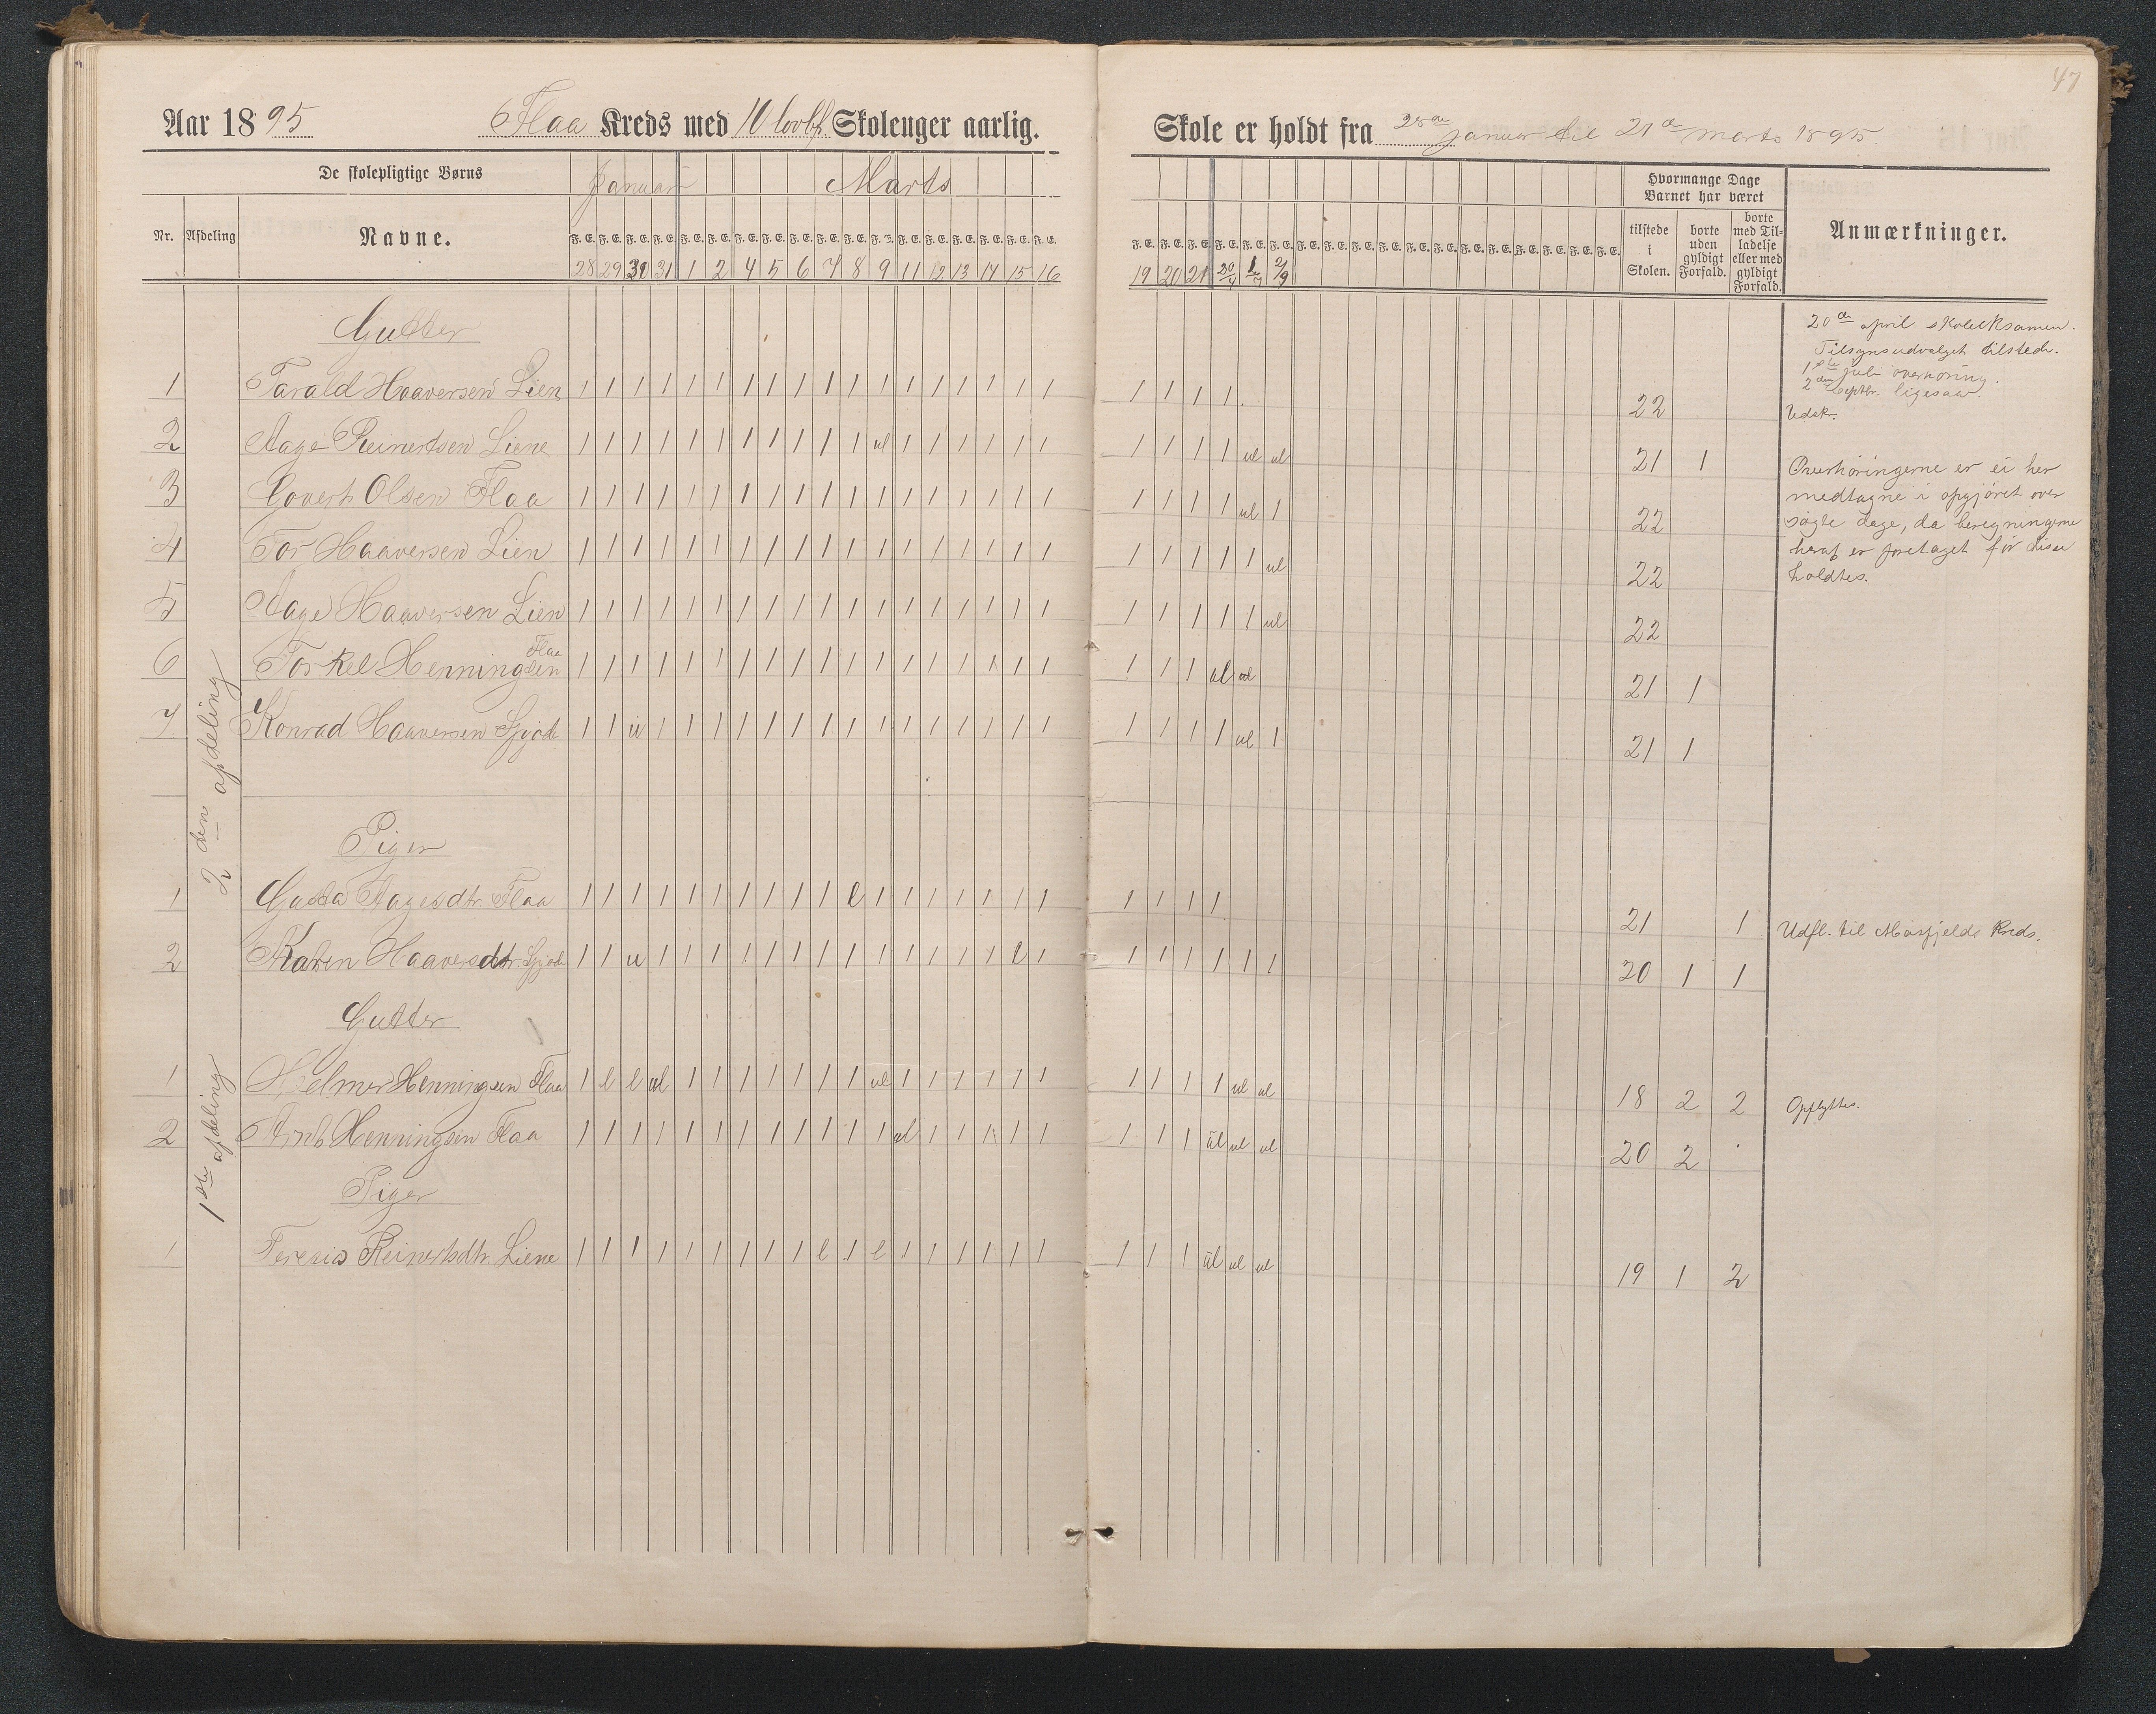 47
Aar 1895 Flaa Kreds med 10 lovbf. Skoleuger aarlig.
Skole er holdt fra 28de januar til 21de marts 1895
De skolepligtige Børns
Januar Marts
Nr. Afdeling Navne.
F. E. F. E. F. E. F. E. F. E. F. E. F. E. F. E. F. E. F. E. F. E. F. E. F. E. F. E. F. E. F. E. F. E. F. E.
28 29 30 31 1 2 4 5 6 7 8 9 11 12 13 14 15 16
F. E. F. E. F. E. F. E. F. E. F. E. F. E. F. E. F. E. F. E. F. E. F. E. F. E. F. E. F. E. F. E. F. E. F. E.
19 20 21 20/4 1/7 2/9
Hvormange Dage
Barnet har været
tilstede
i
Skolen.
borte
uden
gyldigt
Forfald.
borte
med Til-
ladelse
eller med
gyldigt
Forfald.
Anmærkninger.
20de april skoleeksamen.
Tilsynsudvalget tilstede.
1ste juli overhøring.
2den septbr. ligesaa.
Gutter
1 Tarald Haaversen Lien 1 1 1 1 1 1 1 1 1 1 1 1 1 1 1 1 1 1 1 1 1 1 22 Udskr.
2 Aage Reinertsen Liene 1 1 1 1 1 1 1 1 1 1 1 ul 1 1 1 1 1 1 1 1 1 1 ul ul 21 1
3 Govert Olsen Flaa 1 1 1 1 1 1 1 1 1 1 1 1 1 1 1 1 1 1 1 1 1 1 ul 1 22
4 Tor Haaversen Lien 1 1 1 1 1 1 1 1 1 1 1 1 1 1 1 1 1 1 1 1 1 1 1 ul 22
5 Aage Haaversen Lien 1 1 1 1 1 1 1 1 1 1 1 1 1 1 1 1 1 1 1 1 1 1 1 ul 22
6 Torkel Henningsen Flaa 1 1 1 1 1 1 1 1 1 1 1 1 1 1 1 1 1 1 1 1 1 ul ul 21 1
7 Konrad Haaversen 1 1 u 1 1 1 1 1 1 1 1 1 1 1 1 1 1 1 1 1 1 1 ul 1 21 1
Overhøringerne er ei her
medtagne i opgjøret over
søgte dage, da beregningerne
heraf er foretaget før disse
holdtes.
2den afdeling
Piger
1 Gusta Aagesdtr. Flaa 1 1 1 1 1 1 1 1 1 1 l 1 1 1 1 1 1 1 1 1 1 1 21 1 Udfl. til Kreds.
2 Karen Haaversdtr. 1 1 u 1 1 1 1 1 1 1 1 1 1 1 1 1 l 1 1 1 1 1 1 1 20 1 1
Gutter
1ste afdeling
1 Helmer Henningsen Flaa 1 l l ul 1 1 1 1 1 1 1 ul 1 1 1 1 1 1 1 1 1 1 ul ul 18 2 2 Opflyttes.
2 Arnt Henningsen Flaa 1 1 1 1 1 1 1 1 1 1 1 1 ul 1 1 1 1 1 1 1 1 ul ul ul 20 2
Piger
1 Teresia Reinertsdtr. Liene 1 1 1 1 1 1 1 1 1 l 1 l 1 1 1 1 1 1 1 1 1 ul ul ul 19 1 2